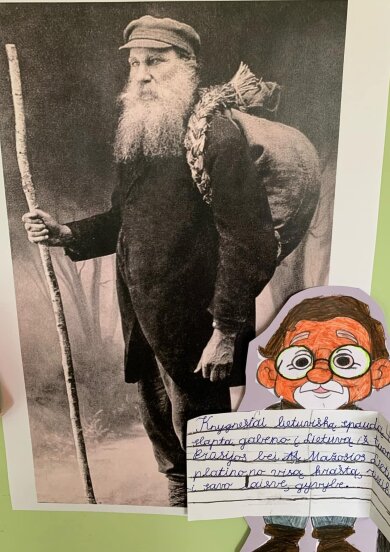 Knygnešiai lietuvišką spaudą
slapta gabeno į Lietuvą iš
Prūsijos bei Mažosios
platino po visą kraštą,
į savo laisvę, gyvybę.